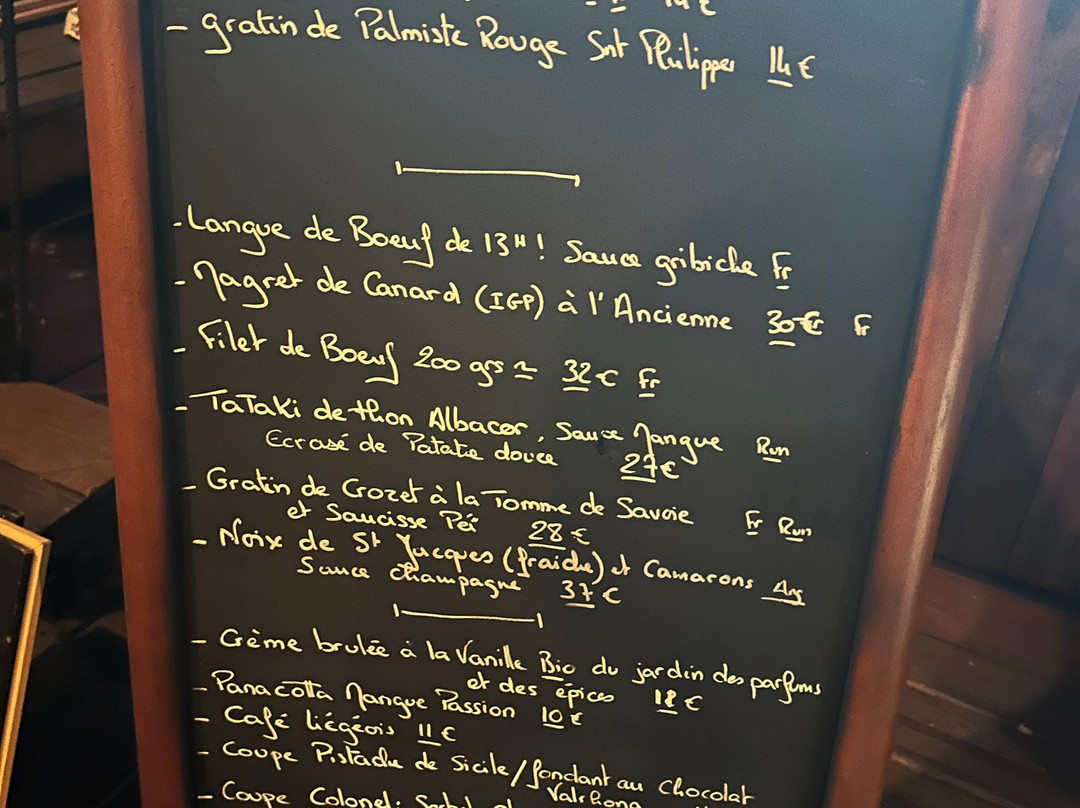 - gratin de Palmiste Rouge Snt Philippe 14€
- Langue de Boeuf de 13H! Sauce gribiche Fr
- Magret de Canard (IGP) à l'Ancienne 30€ Fr
- Filet de Boeuf 200 grs ≃ 32€ Fr
- TaTaki de thon Albacor, Sauce Mangue Run
Ecrasé de Patate douce 27€
- Gratin de Crozet à la Tomme de Savoie Fr Run
et Saucisse Péï 28€
- Noix de St Jacques (fraiche) et Camarons Arg
Sauce champagne 37€
- Crème brulée à la Vanille Bio du jardin des parfums
et des épices €
- Panacotta Mangue Passion 10€
- Café liégeois 11€
- Coupe Pistache de Sicile/fondant au chocolat
Valrhona
- Coupe Colonel: